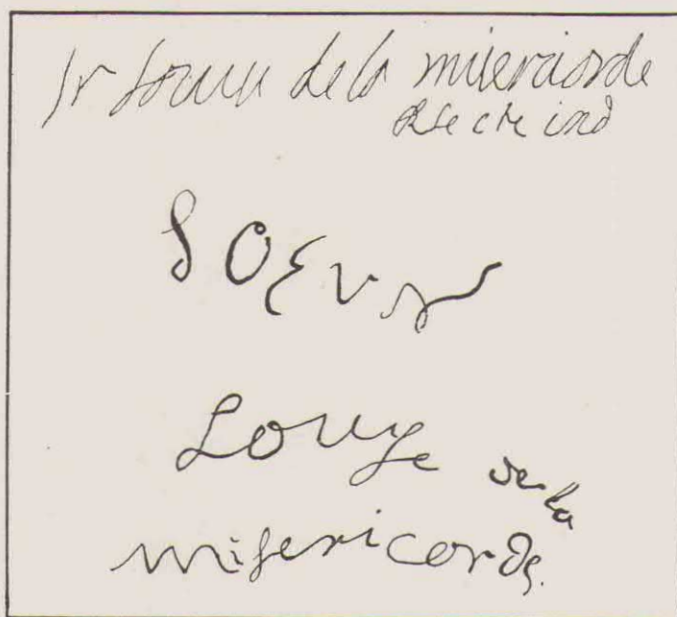 Sr Louise de la misericorde
Rse cte ind
SOEUR
Louyse de la
misericorde.